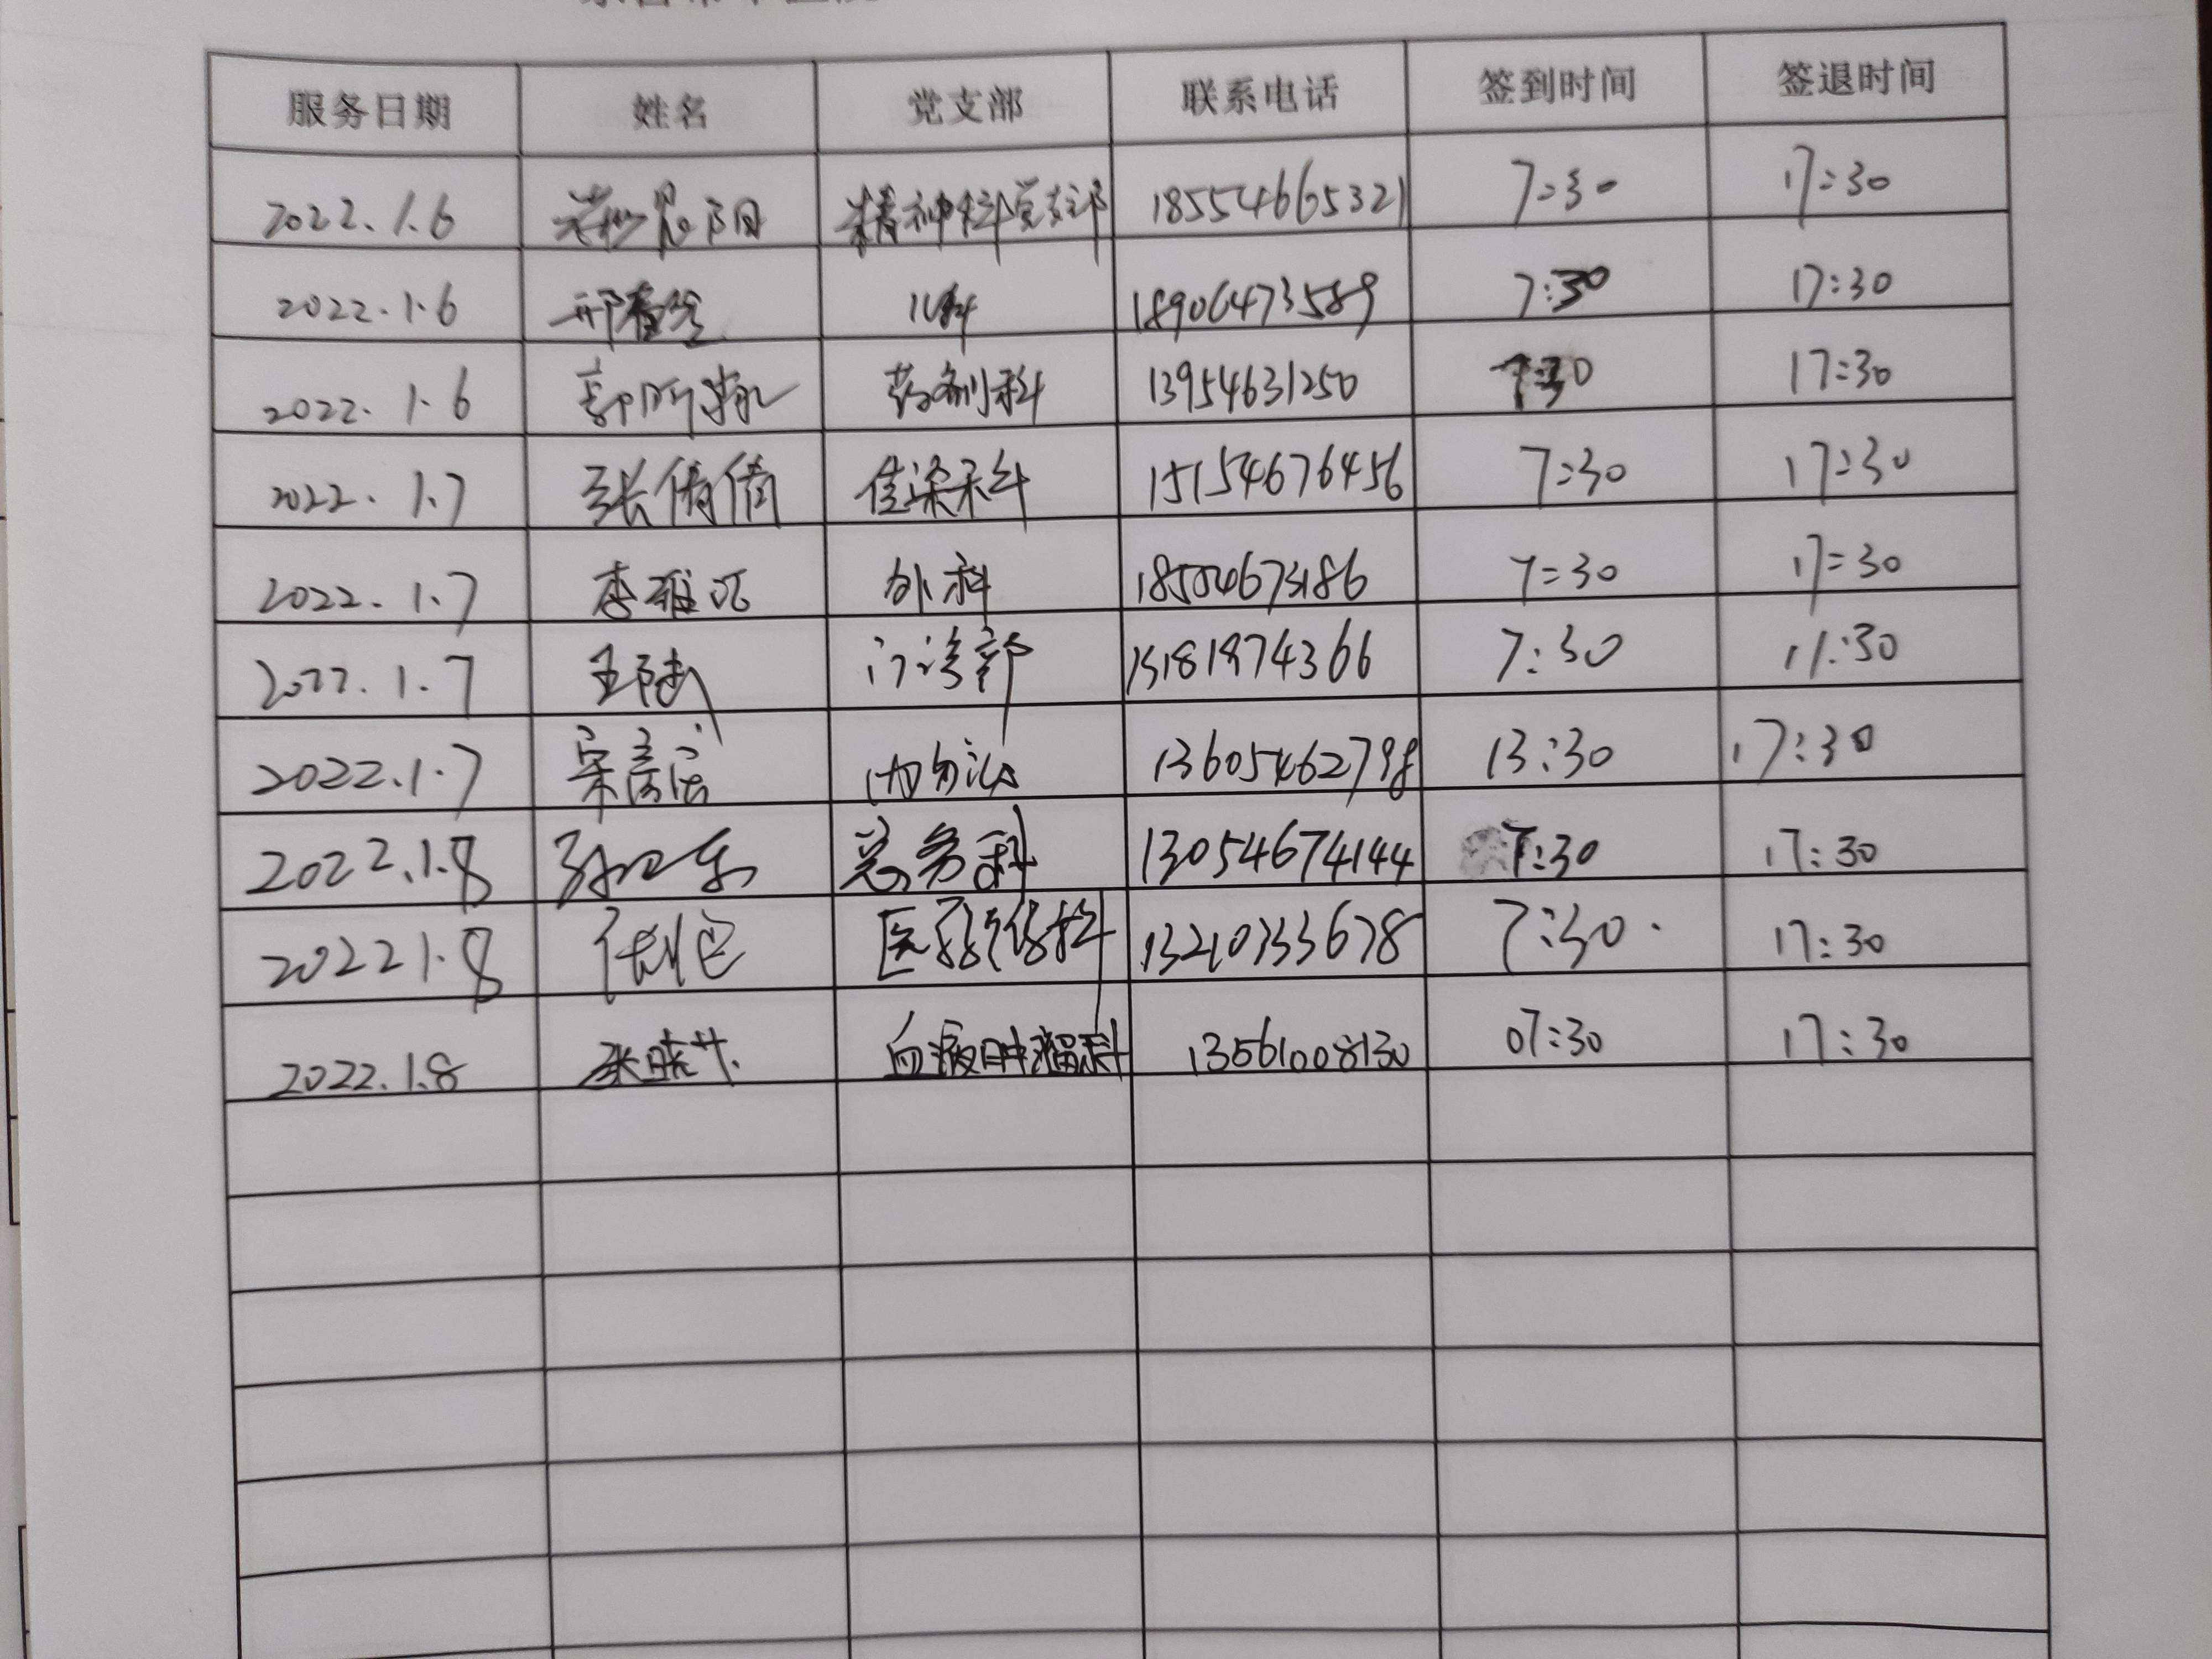 服务日期 姓名 党支部 联系电话 签到时间 签退时间
2022.1.6 晨阳 精神科党支部 18554665321 7:30 17:30
2022.1.6 邢 儿科 18906473589 7:30 17:30
2022.1.6 郭 药剂科 13954631250 7:30 17:30
2022.1.7 张倩倩 传染科 15154676456 7:30 17:30
2022.1.7 李雅 外科 18504673186 7:30 17:30
2022.1.7 王 门诊部 15181974366 7:30 11:30
2022.1.7 宋 13605462798 13:30 17:30
2022.1.8 孙 总务科 13054674144 7:30 17:30
2022 1.8 13210333678 7:30 17:30
2022.1.8 张晓艾 血液肿瘤科 13561008130 07:30 17:30